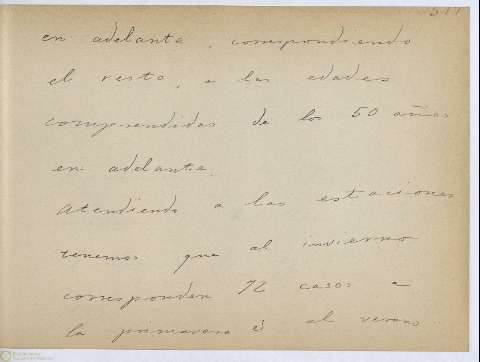 en adelante, correspondiendo
el resto, a las edades
comprendidas de los 50 años
en adelante.
Atendiendo a las estaciones
tenemos que al invierno
corresponden 12 casos a
la primavera 6 al verano